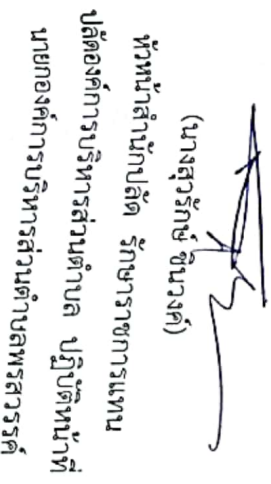 (นางสุวรักษ์ ชินวงค์)
หัวหน้าสำนักปลัด รักษาราชการแทน
ปลัดองค์การบริหารส่วนตำบล ปฏิบัติหน้าที่
นายกองค์การบริหารส่วนตำบลพรสวรรค์